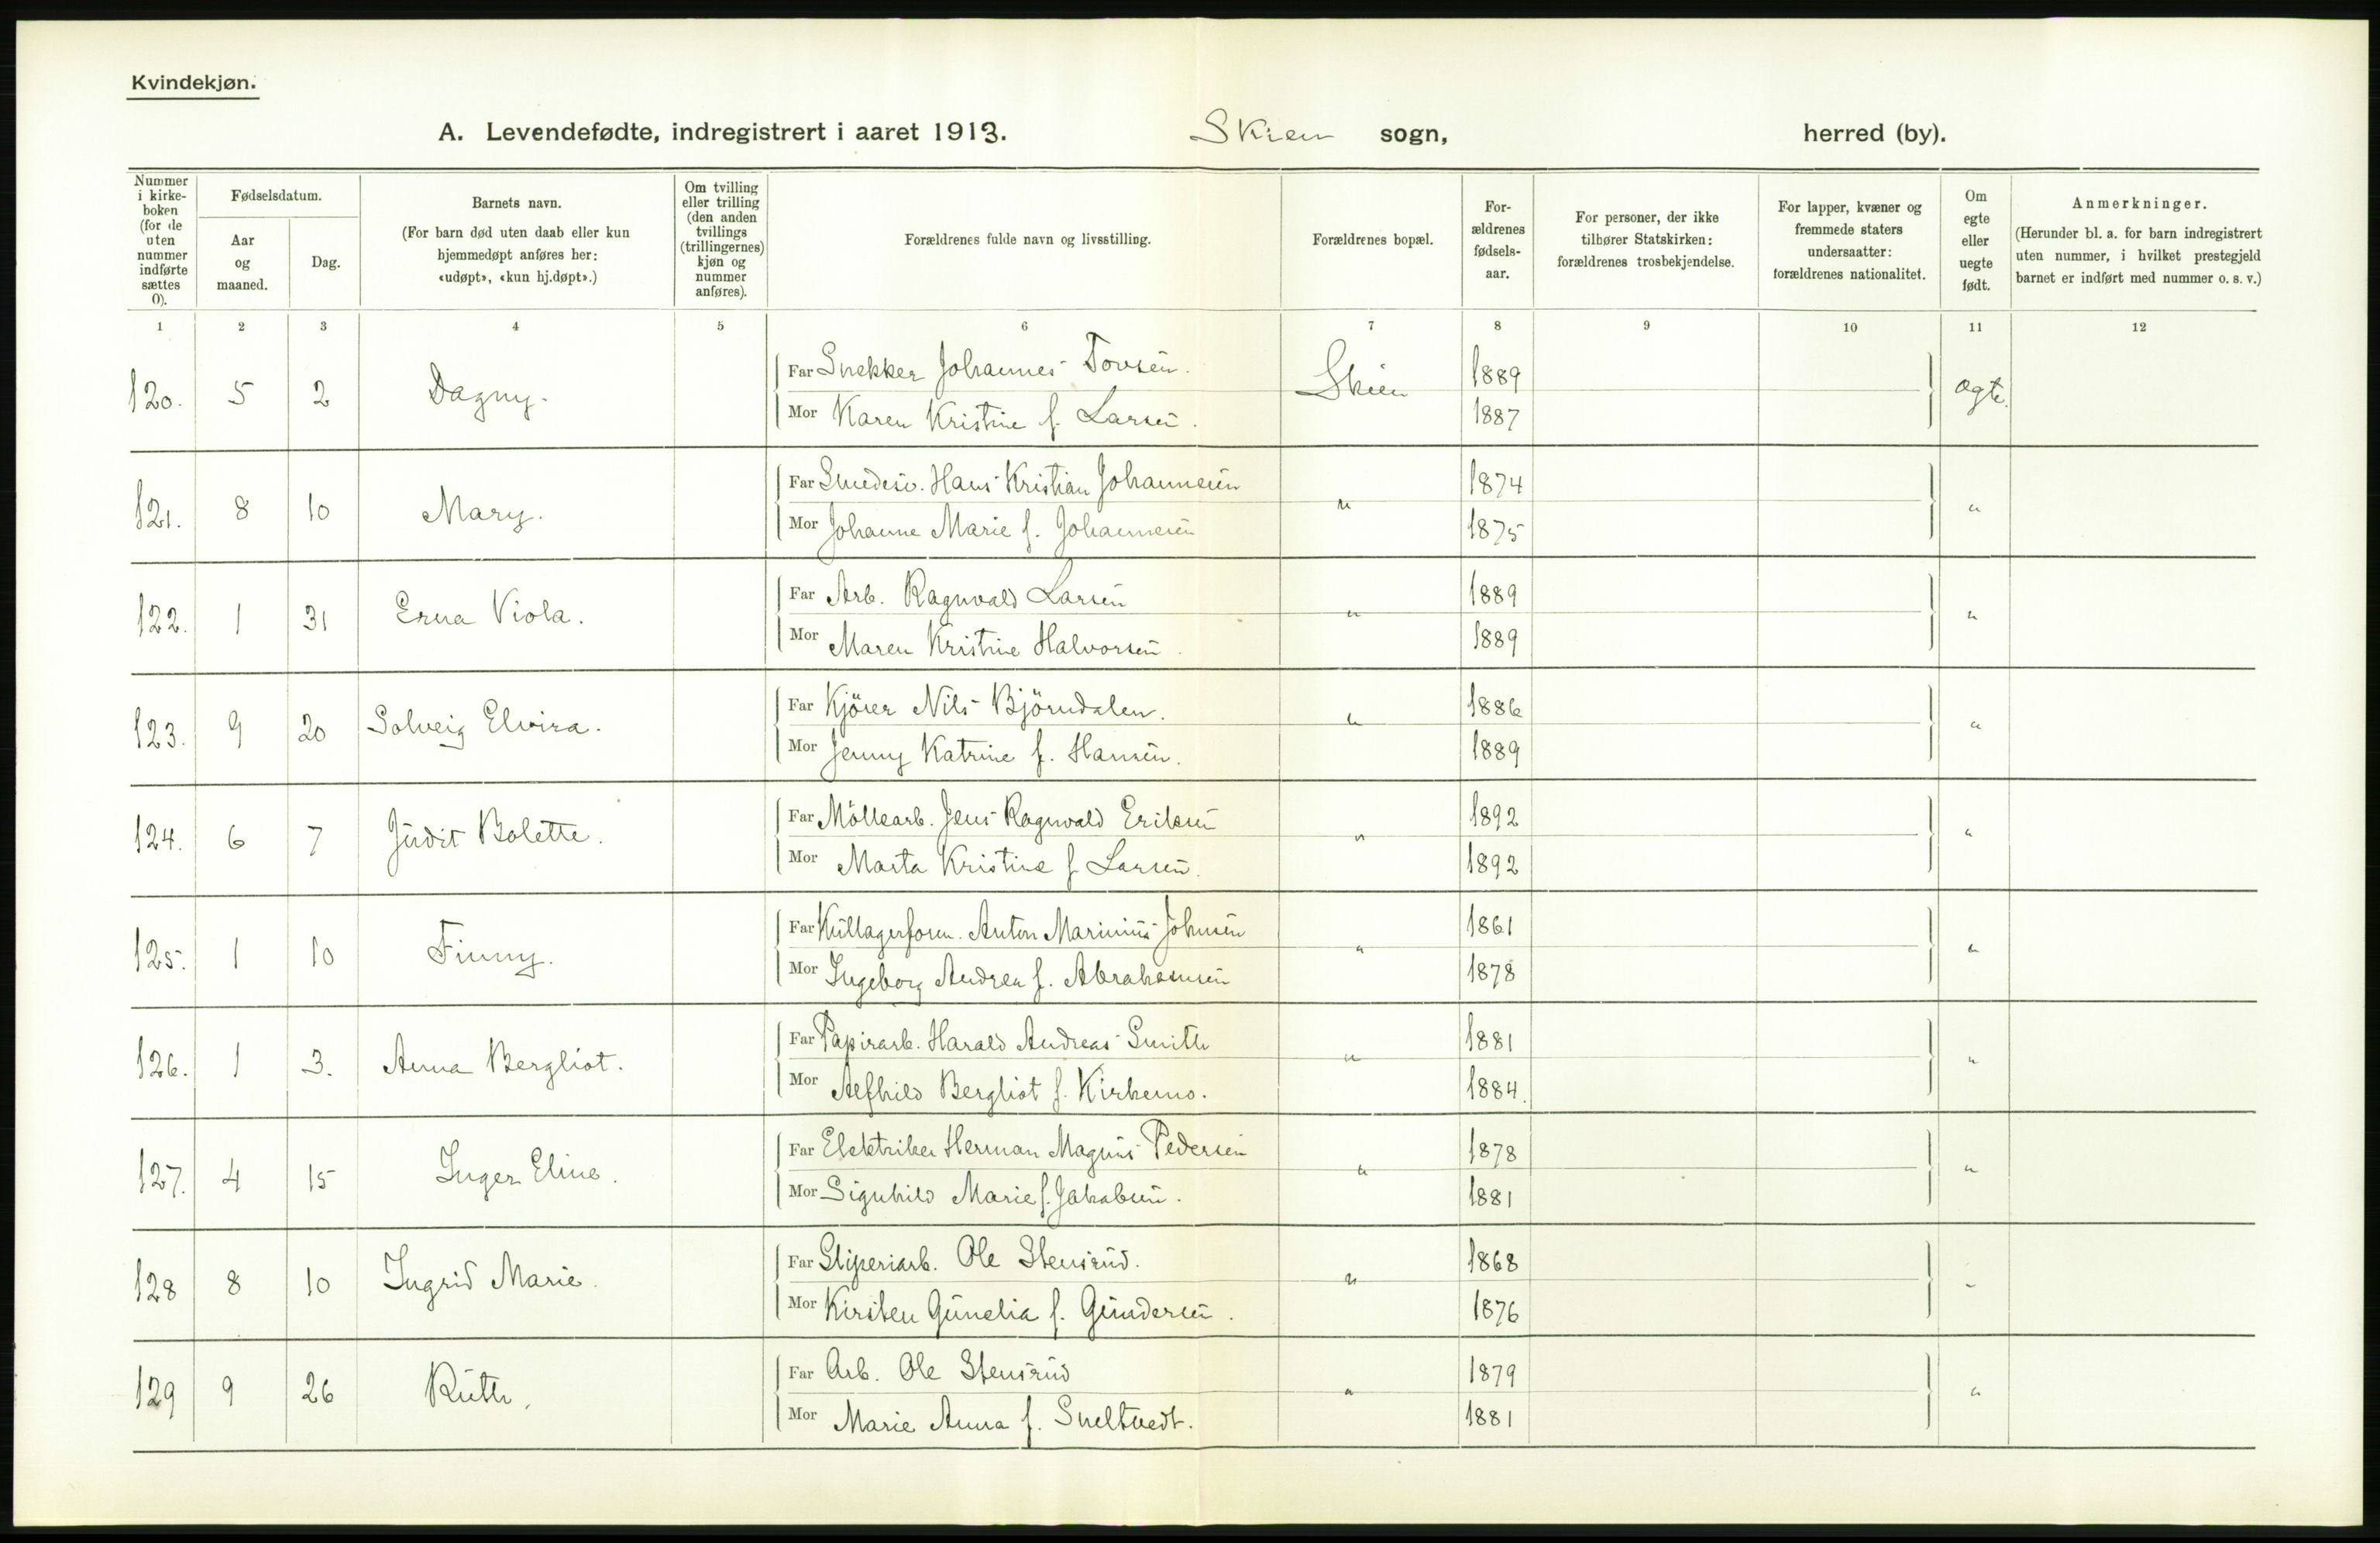 Kvindekjøn.
A. Levendefødte, indregistrert i aaret 1913. Skien sogn, herred (by).
Nummer i kirke-boken (for de uten nummer indførte sættes 0).
Fødselsdatum.
Aar og maaned.
Dag.
Barnets navn.
(For barn død uten daab eller kun hjemmedøpt anføres her: «udøpt», «kun hj.døpt».)
Om tvilling eller trilling (den anden tvillings (trillingernes) kjøn og nummer anføres).
Forældrenes fulde navn og livsstilling.
Forældrenes bopæl.
For-ældrenes fødsels-aar.
For personer, der ikke tilhører Statskirken: forældrenes trosbekjendelse.
For lapper, kvæner og fremmede staters undersaatter: forældrenes nationalitet.
Om egte eller uegte født.
Anmerkninger.
(Herunder bl. a. for barn indregistrert uten nummer, i hvilket prestegjeld barnet er indført med nummer o. s. v.)
1 2 3 4 5 6 7 8 9 10 11 12
120. 5 2 Dagny. Far Snekker Johannes Tovsen. Skien 1889 ægte.
Mor Karen Kristine f. Larsen. 1887
121. 8 10 Mary. Far Smedesv. Hans Kristian Johannesen " 1874 "
Mor Johanne Marie f. Johannesen 1875
122. 1 31 Erna Viola. Far Arb. Ragnvald Larsen " 1889 "
Mor Maren Kristine Halvorsen. 1889
123. 9 20 Solveig Elvira. Far Kjörer Nils Björndalen. " 1886 "
Mor Jenny Katrine f. Hansen. 1889
124. 6 7 Judit Bolette. Far Möllearb. Jens Ragnvald Eriksen " 1892 "
Mor Marta Kristine f. Larsen. 1892
125. 1 10 Finny. Far Kullagerform. Anton Marinius Johnsen " 1861 "
Mor Ingeborg Andrea f. Abrahamsen 1878
126. 1 3. Anna Bergliot. Far Papirarb. Harald Andreas Smith " 1881 "
Mor Alfhild Bergliot f. Kirkemo. 1884.
127. 4 15 Inger Eline. Far Elektriker Herman Magnus Pedersen " 1878 "
Mor Signhild Marie f. Jakobsen. 1881
128 8 10 Ingrid Marie. Far Sliperiarb. Ole Stensrud. " 1868 "
Mor Kirsten Gunelia f. Gundersen. 1876
129 9 26 Ruth. Far Arb. Ole Stensrud " 1879 "
Mor Marie Anna f. Sneltvedt. 1881